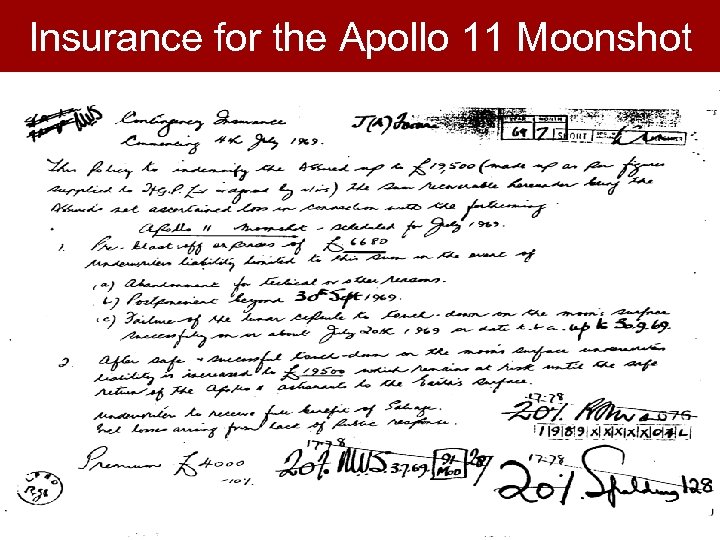 Insurance for the Apollo 11 Moonshot
Contingency Insurance J(A) Form
Commencing 4th July 1969. 69 7 SHORT
This Policy to indemnify the Assured up to £19,500 (made up as per figures
supplied to H.G.P. & agreed by ) the sum recoverable hereunder being the
Assureds net ascertained loss in connection with the forthcoming
Apollo 11 Moonshot - scheduled for July 1969.
1. Pre-blast off expenses of £6680
underwriters liability limited to this sum in the event of
(a) Abandonment for technical or other reasons.
(b) Postponement beyond 30th Sept 1969.
(c) Failure of the lunar capsule to touch-down on the moon's surface
successfully on or about July 20th 1969 or date t.b.a. up to 30.9.69.
2. After safe & successful touch-down on the moon's surface underwriters
liability is increased to £19500 which remains at risk until the safe
return of the Apollo 11 astronauts to the Earth's surface.
Underwriters to receive full benefit of Salvage.
Excl losses arising from lack of Public response.
17.78
20% 1989XXXXX04L
Premium £4000
-10%
17.78
20% NWS 3.7.69 91 MOD 287
17.78
20% Spalding 128